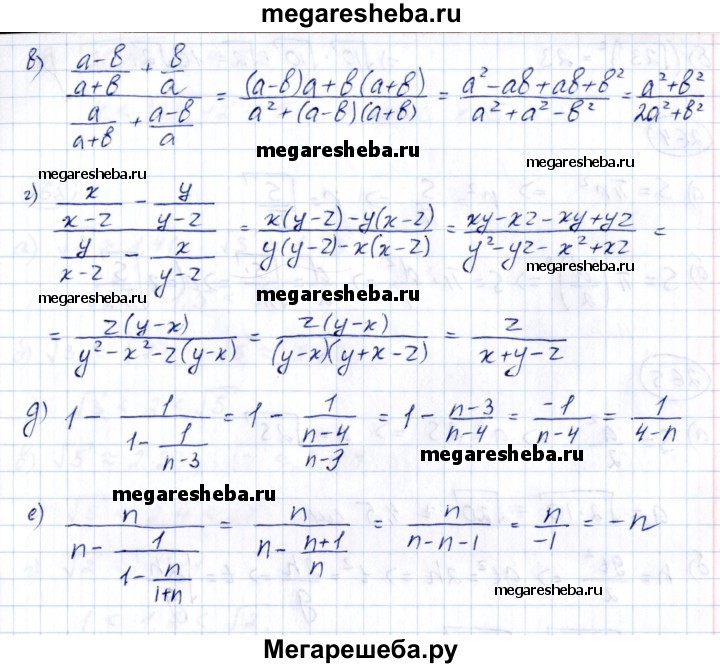 megaresheba.ru
в) ((a-в)/(a+в) + в/a)/(a/(a+в) + (a-в)/a) = ((a-в)a+в(a+в))/(a²+(a-в)(a+в)) = (a²-aв+aв+в²)/(a²+a²-в²) = (a²+в²)/(2a²+в²)
megaresheba.ru megaresheba.ru
megaresheba.ru
г) (x/(x-z) - y/(y-z))/(y/(x-z) - x/(y-z)) = (x(y-z)-y(x-z))/(y(y-z)-x(x-z)) = (xy-xz-xy+yz)/(y²-yz-x²+xz) =
megaresheba.ru
megaresheba.ru megaresheba.ru
= z(y-x)/(y²-x²-z(y-x)) = z(y-x)/((y-x)(y+x-z)) = z/(x+y-z)
д) 1 - 1/(1 - 1/(n-3)) = 1 - 1/((n-4)/(n-3)) = 1 - (n-3)/(n-4) = -1/(n-4) = 1/(4-n)
megaresheba.ru
megaresheba.ru
е) n/(n - 1/(1 - n/(1+n))) = n/(n - (n+1)/n) = n/(n-n-1) = n/-1 = -n
megaresheba.ru
Мегарешеба.ру